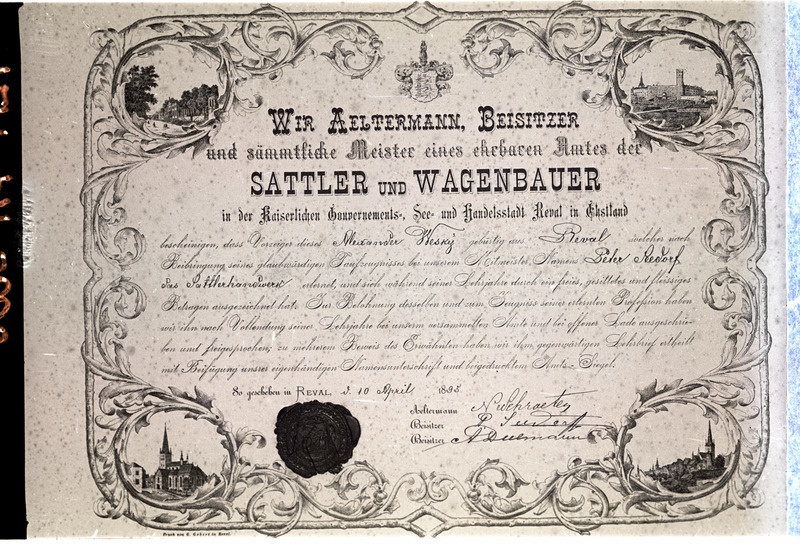 Wir Aeltermann, Beisitzer
und sämmtliche Meister eines ehrbaren Amtes der
SATTLER UND WAGENBAUER
in der Kaiserlichen Gouvernements-, See- und Handelsstadt Reval in Ehstland
bescheinigen, dass Vorzeiger dieses Alexander Wesky gebürtig aus Reval welcher nach
Beibringung seines glaubwürdigen Taufzeugnisses bei unserem Mitmeister, Namens Peter
das Sattlerhandwerk erlernet, und sich während seiner Lehrjahre durch ein freies, gesittetes und fleissiges
Betragen ausgezeichnet hat. Zur Belohnung desselben und zum Zeugniss seiner erlernten Profession haben
wir ihn nach Vollendung seiner Lehrjahre bei unserm versammelten Amte und bei offener Lade ausgeschrie-
ben und freigesprochen; zu mehrerem Beweis des Erwähnten haben wir ihm gegenwärtigen Lehrbrief ertheilt
mit Beifügung unsrer eigenhändigen Namensunterschrift und beigedrucktem Amts-Siegel.
So geschehen in REVAL, d. 10 April 1895
Aeltermann
Beisitzer
Beisitzer
Druck von in Reval.